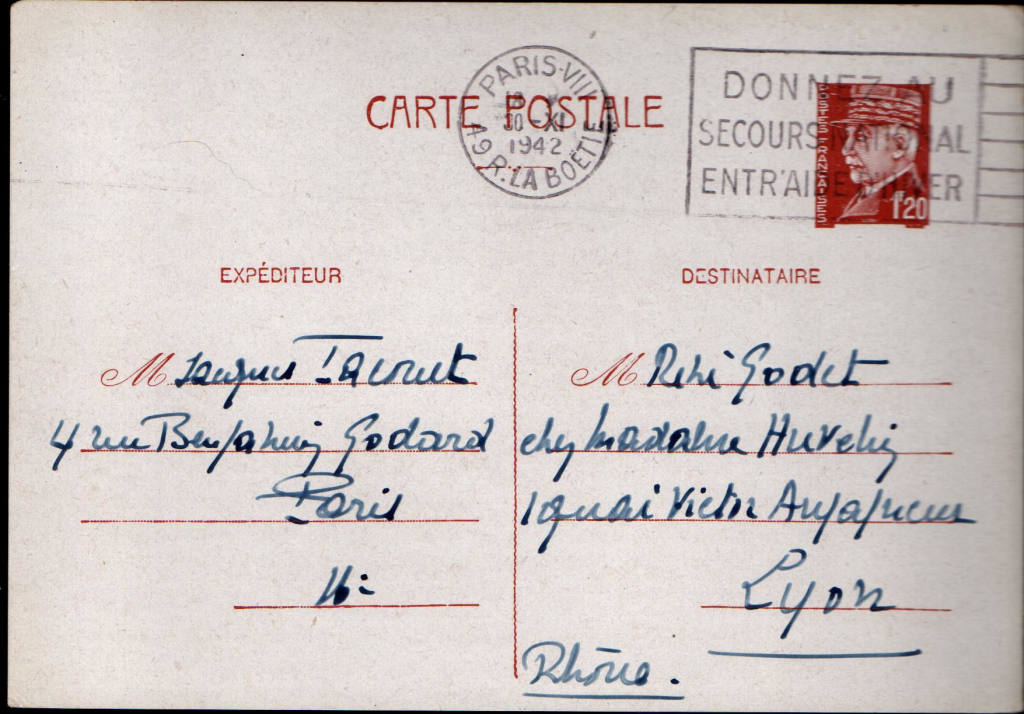 CARTE POSTALE
PARIS-VIII
30 -XI
1942
49 R. LA BOËTIE
DONNEZ AU
SECOURS NATIONAL
ENTR'AIDE D'HIVER
POSTES FRANÇAISES
1F20
EXPÉDITEUR
M Jacques Lacouet
4 rue Benjamin Godard
Paris
16e
DESTINATAIRE
M René Godet
chez Madame
quai Victor Augagneur
Lyon
Rhône.